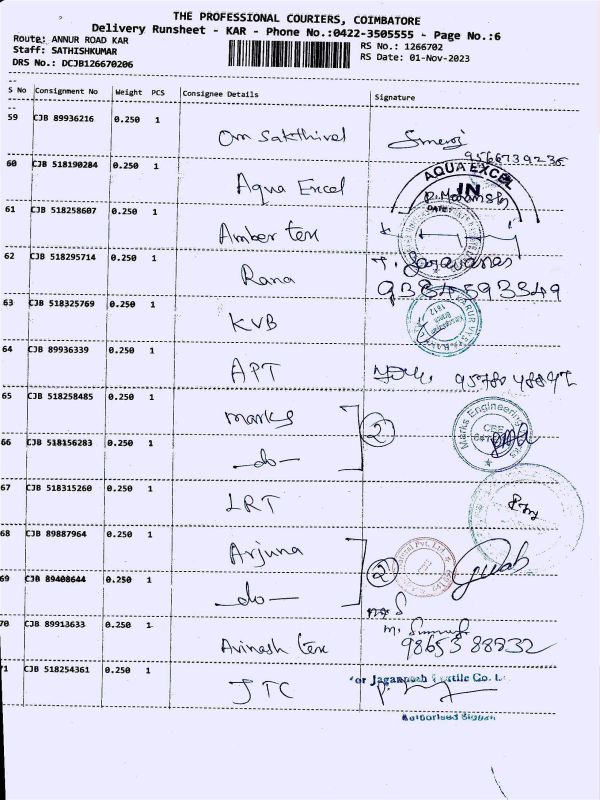 THE PROFESSIONAL COURIERS, COIMBATORE
Delivery Runsheet - KAR - Phone No.:0422-3505555 - Page No.:6
Route: ANNUR ROAD KAR
Staff: SATHISHKUMAR
DRS No.: DCJB126670206
RS No.: 1266702
RS Date: 01-Nov-2023
S No Consignment No Weight PCS Consignee Details Signature
59 CJB 89936216 0.250 1 Om Sakthivel
9566739236
60 CJB 518190284 0.250 1 Aqua Excel AQUA EXCEL
IN
DATE:
61 CJB 518258607 0.250 1 Amber tex
62 CJB 518295714 0.250 1 Rana T. Saravanan
9384593349
63 CJB 518325769 0.250 1 KVB
64 CJB 89936339 0.250 1 APT
65 CJB 518258485 0.250 1 marks 2 Marks Engineering
66 CJB 518156283 0.250 1 -do-
67 CJB 518315260 0.250 1 LRT
68 CJB 89887964 0.250 1 Arjuna 2
69 CJB 89408644 0.250 1 -do-
70 CJB 89913633 0.250 1 Avinash tex 98653 88932
71 CJB 518254361 0.250 1 JTC For Jagannath Textile Co. L
Authorised Signat